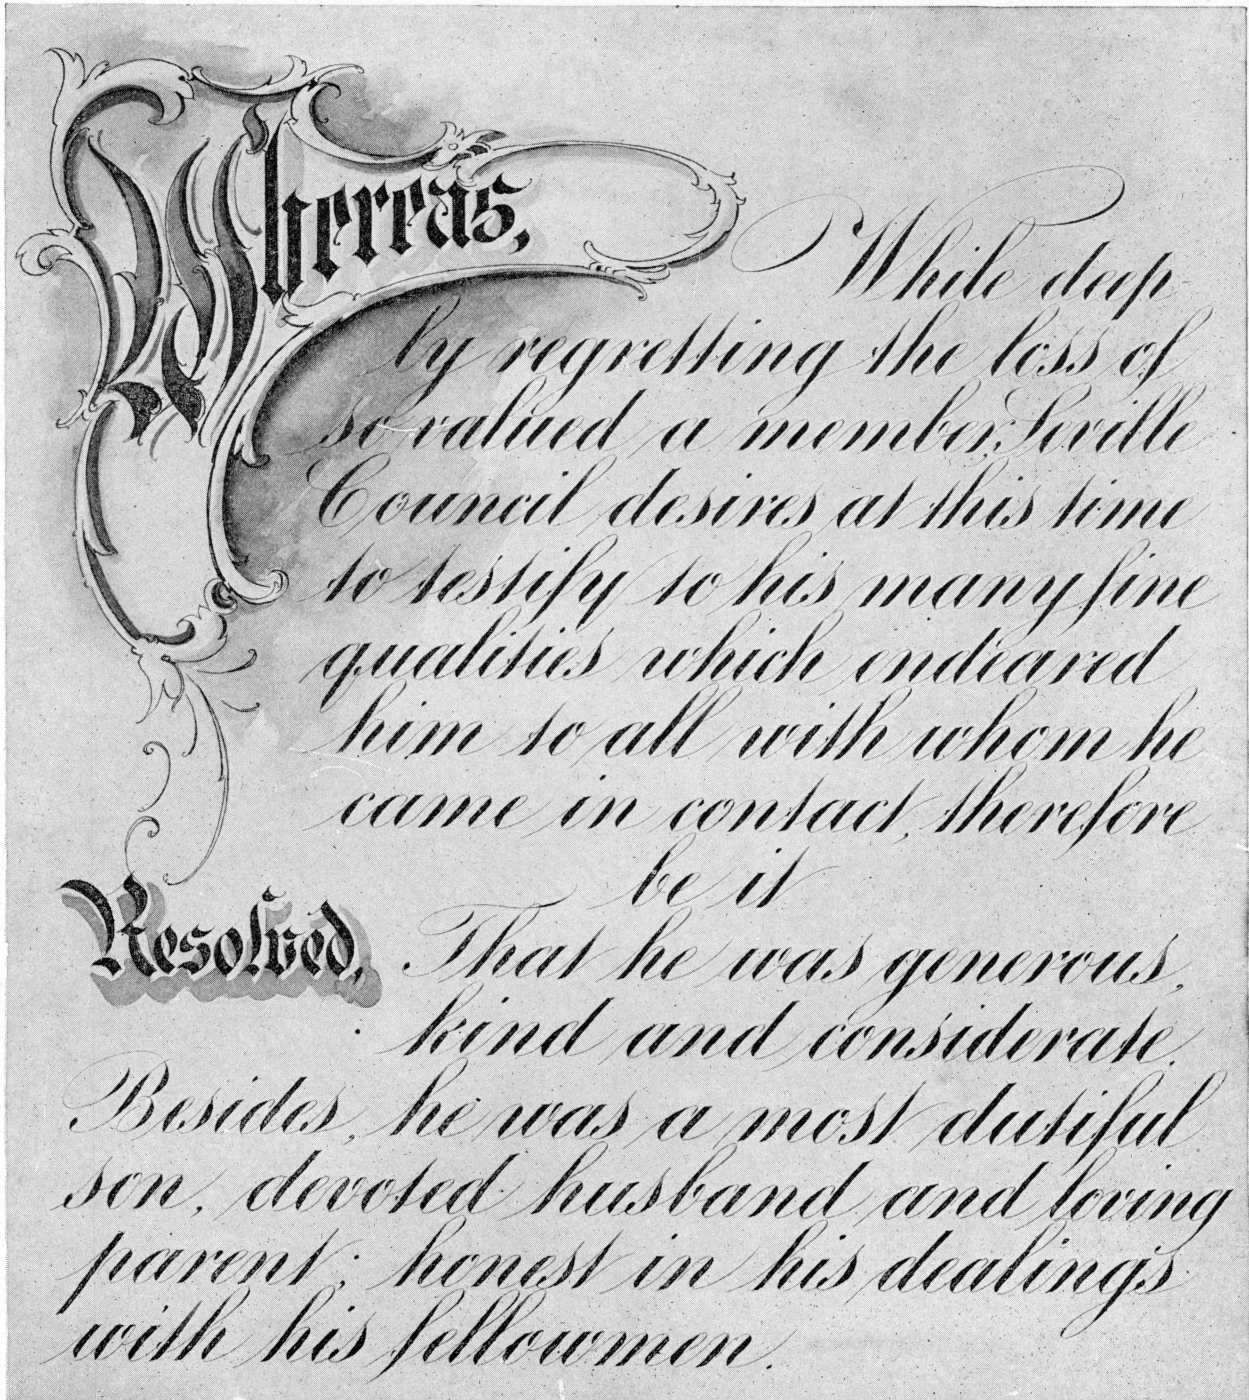 Whereas, While deep-
ly regretting the loss of
so valued a member, Seville
Council desires at this time
to testify to his many fine
qualities which endeared
him to all with whom he
came in contact, therefore
be it
Resolved, That he was generous,
kind and considerate.
Besides, he was a most dutiful
son, devoted husband and loving
parent; honest in his dealings
with his fellowmen.